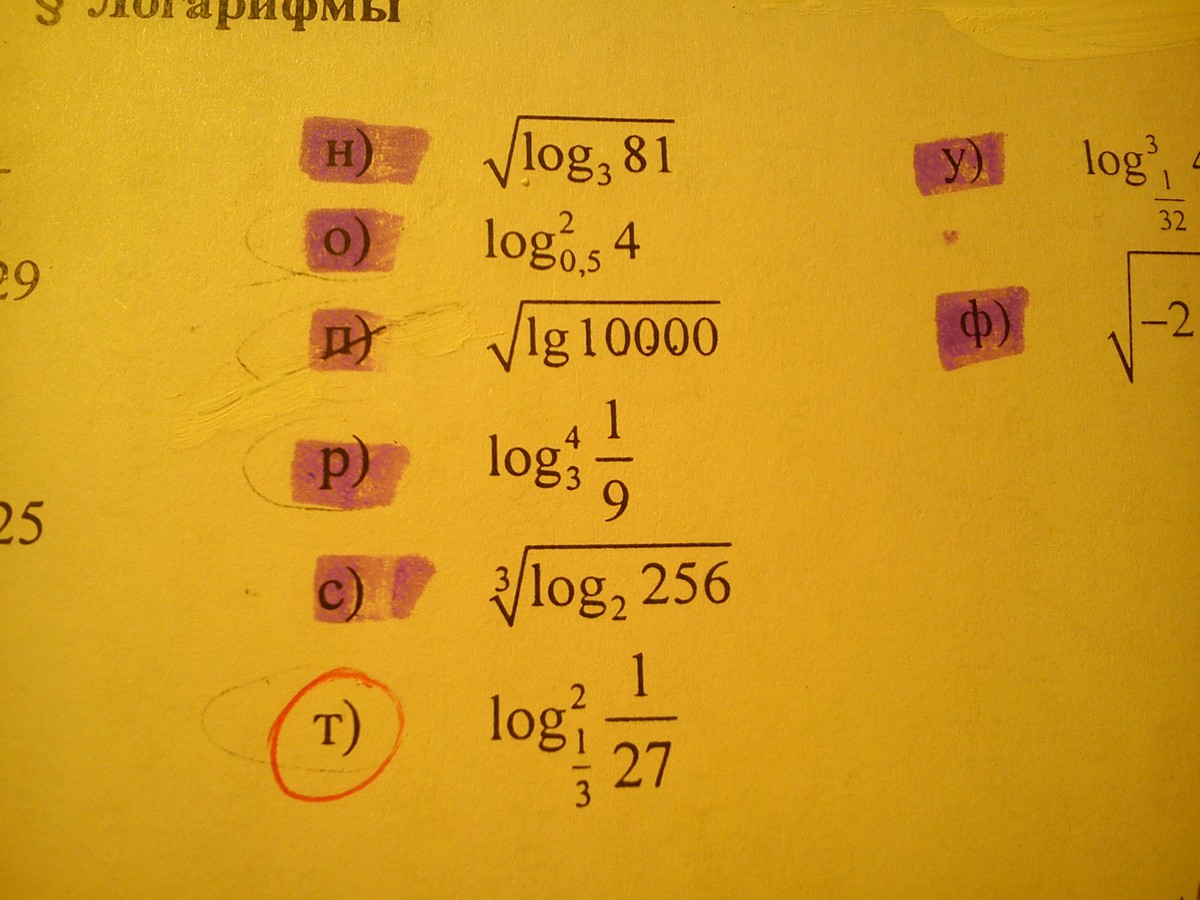 § Логарифмы
29
25
н) √log₃ 81
о) log²₀,₅ 4
п) √lg 10000
р) log⁴₃ 1/9
с) ∛log₂ 256
т) log²_1/3 1/27
у) log³_1/32
ф) √−2